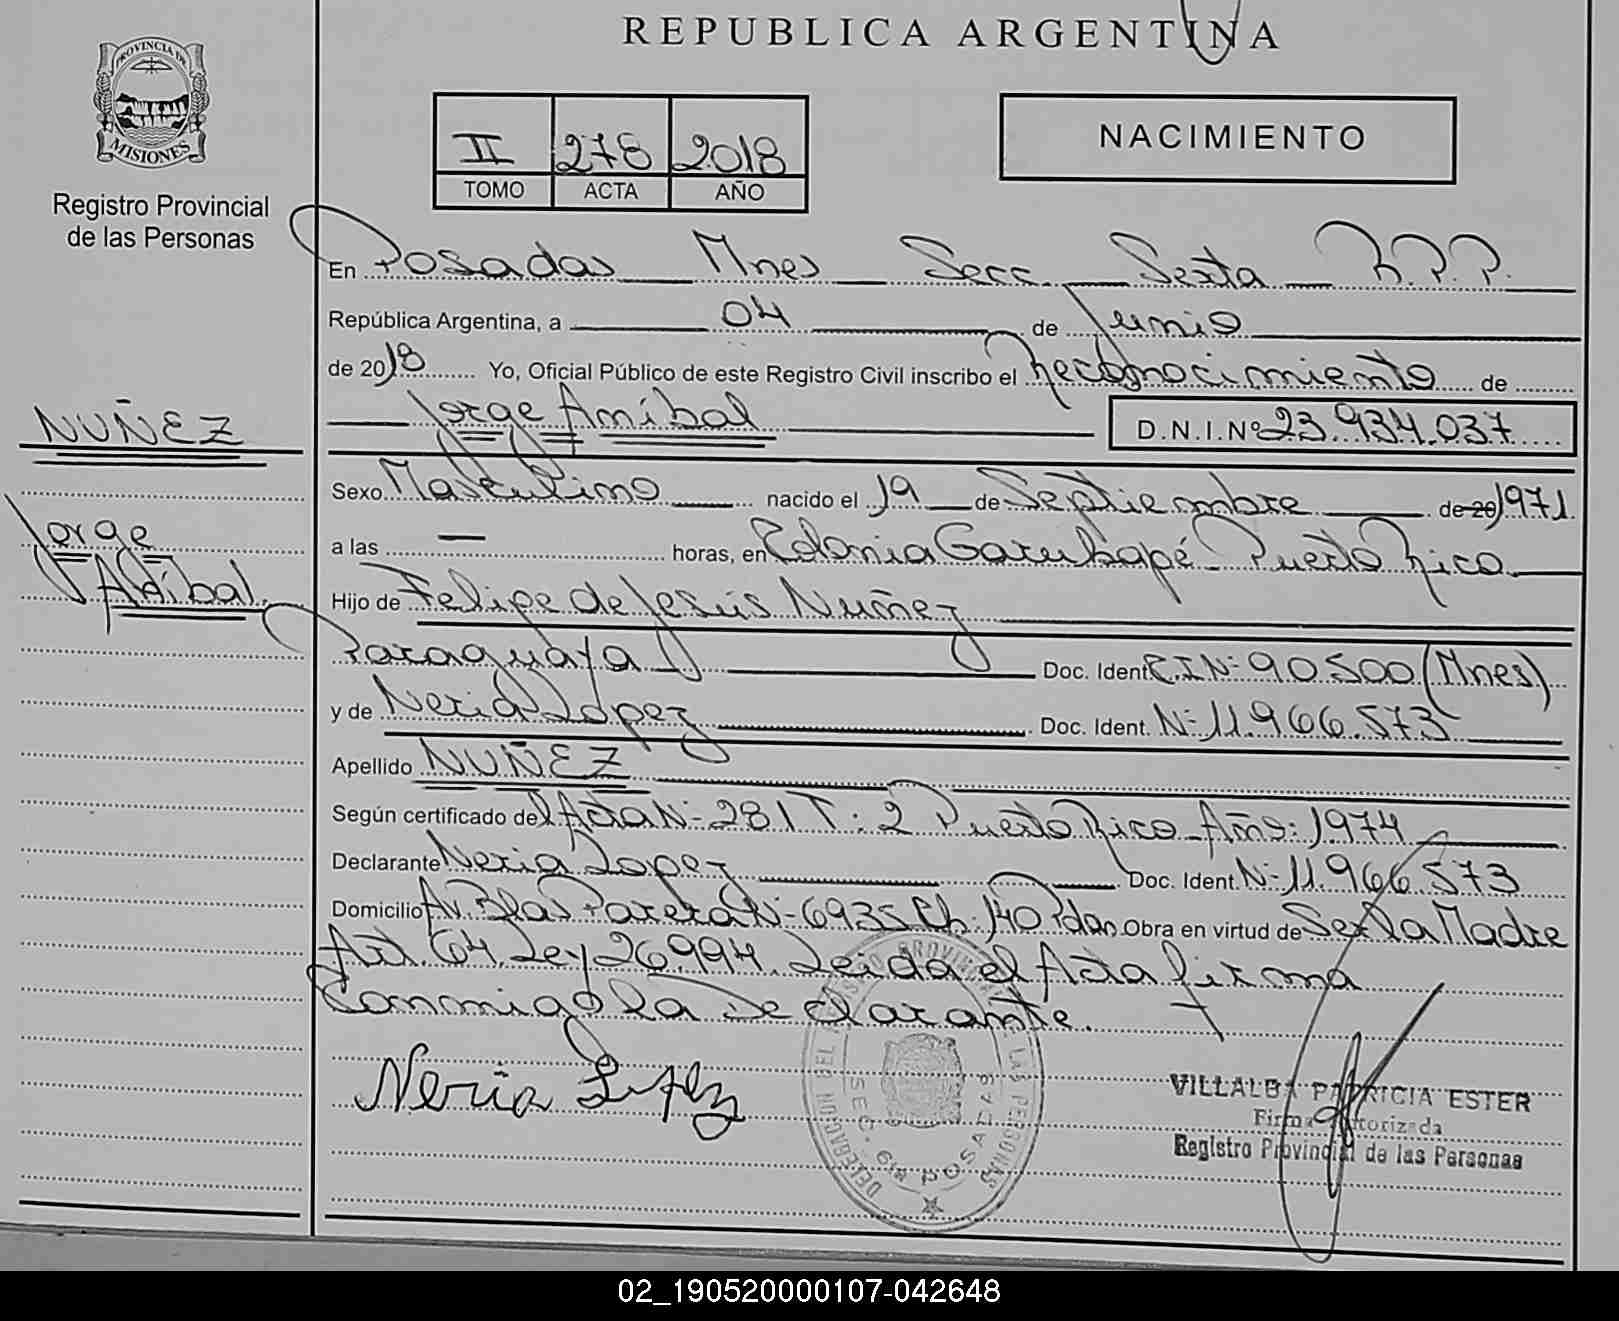 REPUBLICA ARGENTINA
PROVINCIA DE
MISIONES
Registro Provincial
de las Personas
II 278 2018
TOMO ACTA AÑO
NACIMIENTO
En Posadas Mnes Secc. Sexta R.P.P.
República Argentina, a 04 de Junio
de 2018 Yo, Oficial Público de este Registro Civil inscribo el Reconocimiento de
Jorge Anibal D.N.I.Nº 23.934.037
NUÑEZ
Jorge
Anibal.
Sexo Masculino nacido el 19 de Septiembre de 20 1971
a las — horas, en Colonia Garuhapé - Puerto Rico
Hijo de Felipe de Jesús Nuñez
Paraguaya Doc. Ident. C.I Nº 90.500 (Mnes)
y de Neria Lopez Doc. Ident. Nº 11.966.573
Apellido NUÑEZ
Según certificado del Acta Nº 281 T: 2 Puerto Rico - Año: 1974
Declarante Neria Lopez Doc. Ident. Nº 11.966.573
Domicilio Av. Blas Parera Nº 6935 Ch. 140 Pdas Obra en virtud de Ser la Madre
Art. 64. Ley 26.994. Leida el Acta firma
Conmigo la Declarante.
Neria Lopez
DELEGACION DEL REGISTRO PROVINCIAL DE LAS PERSONAS
SEC. 6ta POSADAS
VILLALBA PATRICIA ESTER
Firma Autorizada
Registro Provincial de las Personas
02_190520000107-042648